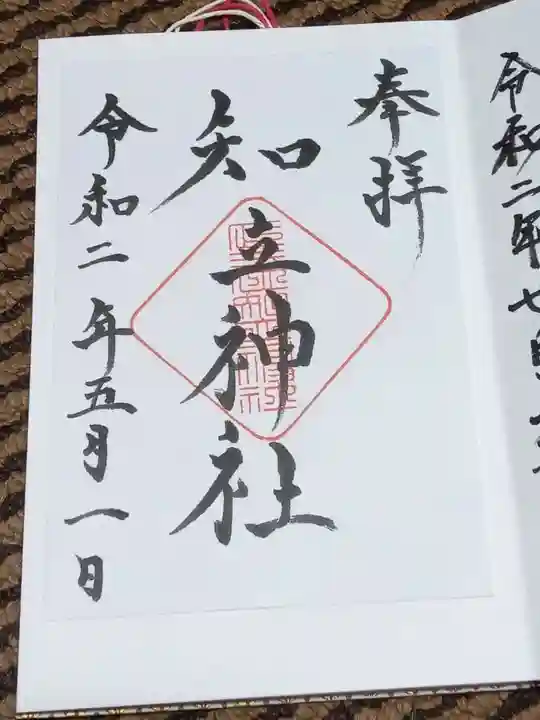 令和二年七月
奉拝
知立神社
令和二年五月一日